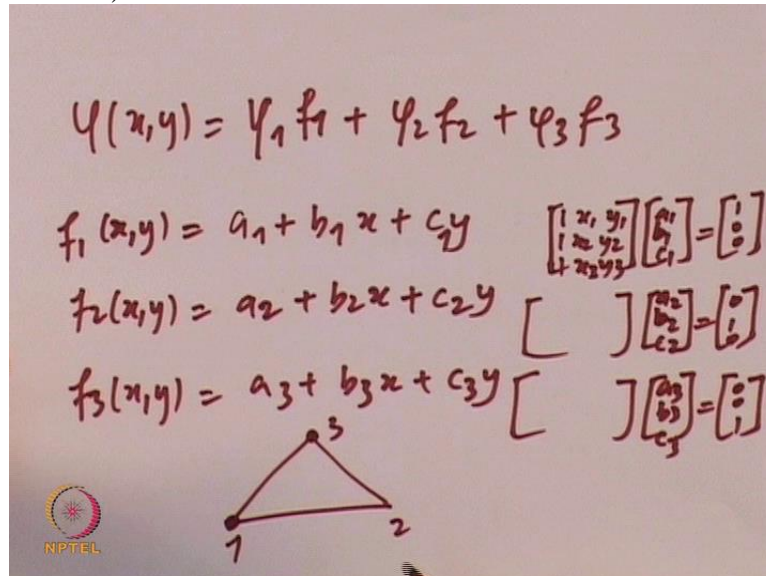 φ(x,y) = φ1 f1 + φ2 f2 + φ3 f3
f1 (x,y) = a1 + b1 x + c1 y [1 x1 y1 1 x2 y2 1 x3 y3] [a1 b1 c1] = [1 0 0]
f2(x,y) = a2 + b2 x + c2 y [ ] [a2 b2 c2] = [0 1 0]
f3(x,y) = a3 + b3 x + c3 y [ ] [a3 b3 c3] = [0 0 1]
3
1 2
NPTEL